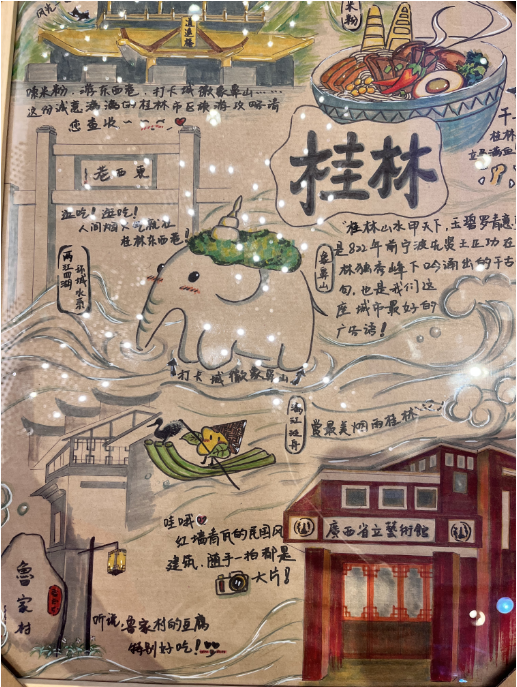 风光
逍遥楼
米粉
嗦米粉、游东西巷、打卡城徽象鼻山……
这份诚意满满的桂林市区旅游攻略请
您查收~
桂林
老西東
逛吃!逛吃!
人间烟火气就让
桂林东西巷!
两江四湖
环城水系
象鼻山
"桂林山水甲天下,玉碧罗青意
是822年前宁波先贤王正功在
林独秀峰下吟诵出的千古
句,也是我们这
座城市最好的
广告语!
打卡城徽象鼻山
漓江泛舟
赏最美烟雨桂林
哇哦
红墙青瓦的民国风
建筑,随手一拍都是
大片!
廣西省立藝術館
魯家村
听说,鲁家村的豆腐
特别好吃!